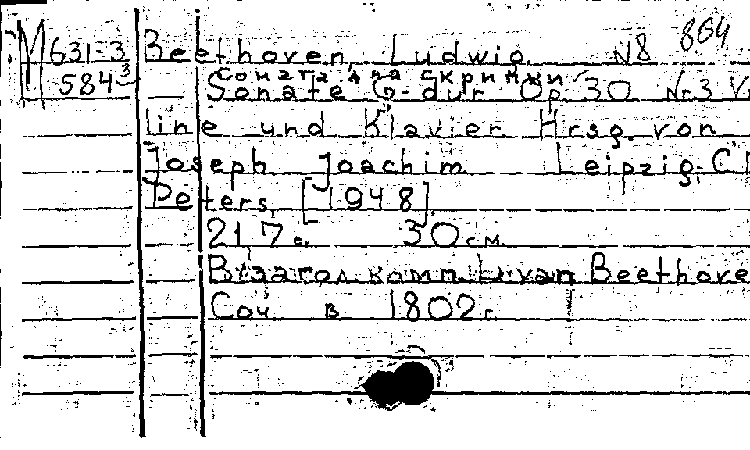 М 631-3 Beethoven, Ludwig N8 864
584-3 Соната для скрипки
Sonate G-dur Op. 30 Nr.3 Vi
line und Klavier Hrsg. von
Joseph Joachim Leipzig. C.F
Peters, [1948].
21,7 с. 30 см.
В заагол. комп. L. van Beethove
Соч в 1802 г.